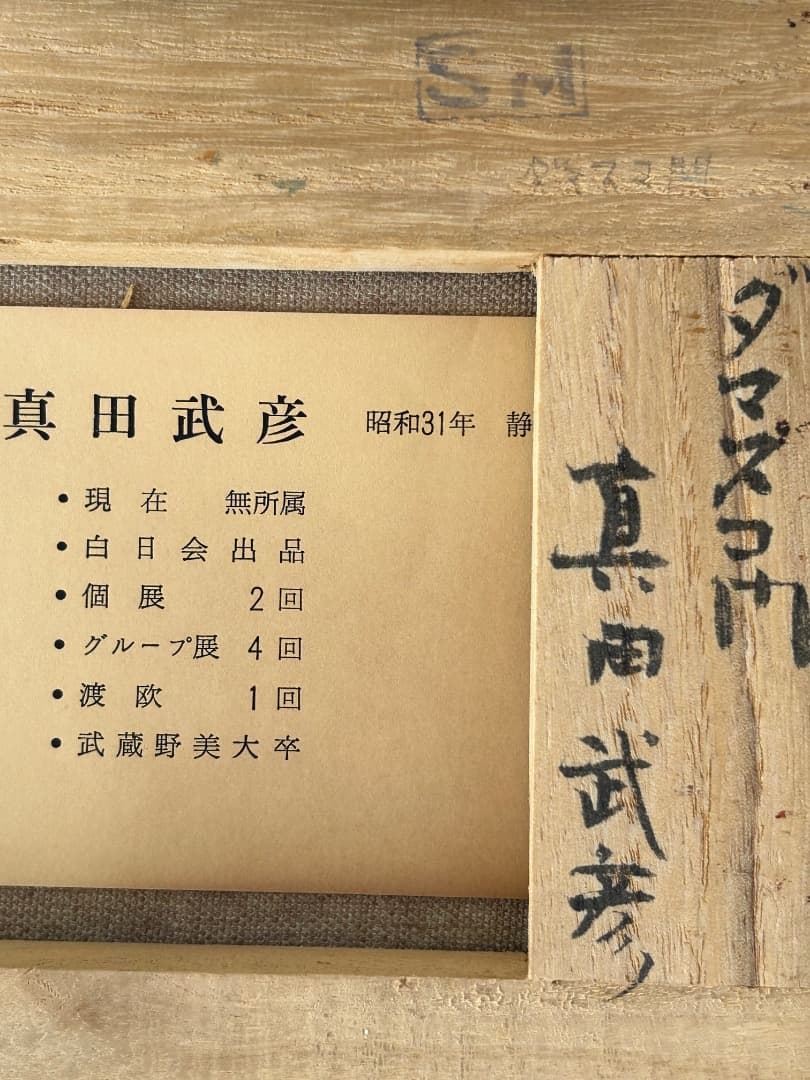 SM
真田武彦 昭和31年 静
• 現在 無所属
• 白日会出品
• 個展 2回
• グループ展 4回
• 渡欧 1回
• 武蔵野美大卒
ダマスコ門
真田武彦